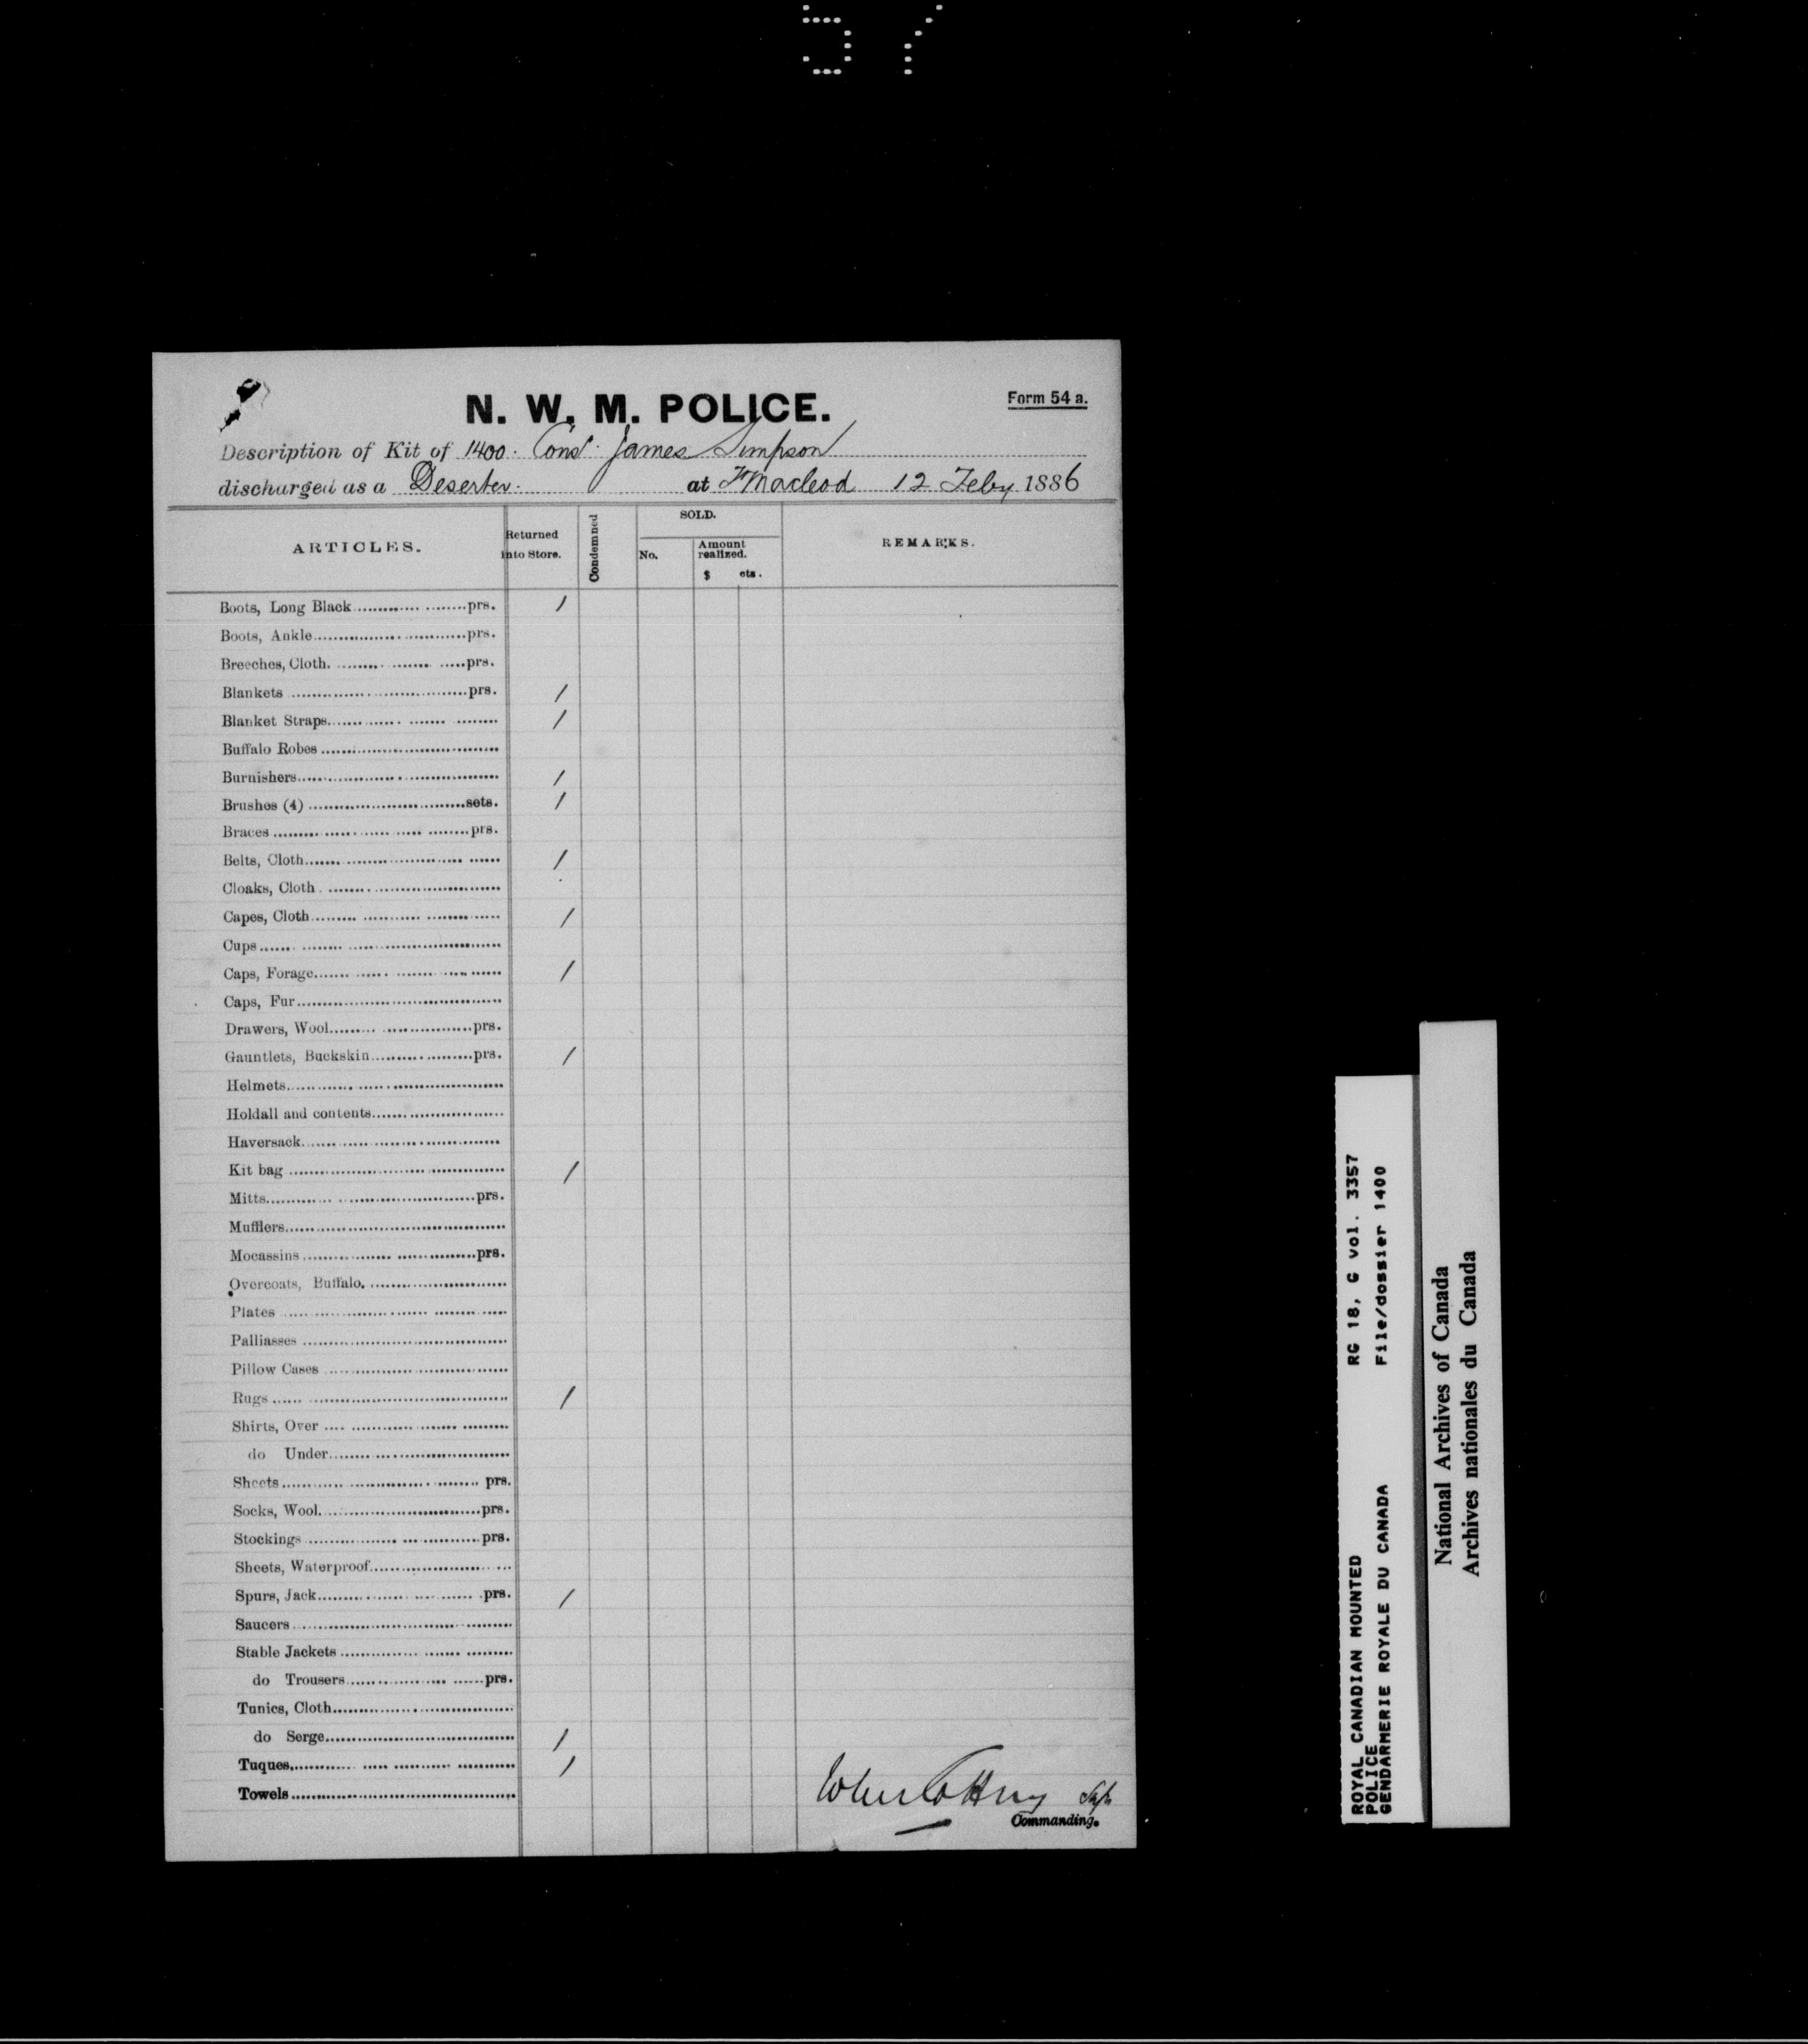 57
N. W. M. POLICE.
Form 54 a.
Description of Kit of 1400. Const. James Simpson
discharged as a Deserter. at Ft Macleod 12 Feby 1886
ARTICLES.
Returned into Store.
Condemned
SOLD.
No.
Amount realized.
$ cts.
REMARKS.
Boots, Long Black prs. 1
Boots, Ankle prs.
Breeches, Cloth. prs.
Blankets prs. 1
Blanket Straps 1
Buffalo Robes
Burnishers 1
Brushes (4) sets. 1
Braces prs.
Belts, Cloth 1
Cloaks, Cloth
Capes, Cloth 1
Cups
Caps, Forage 1
Caps, Fur
Drawers, Wool prs.
Gauntlets, Buckskin prs. 1
Helmets
Holdall and contents
Haversack
Kit bag 1
Mitts prs.
Mufflers
Mocassins prs.
Overcoats, Buffalo.
Plates
Palliasses
Pillow Cases
Rugs 1
Shirts, Over
do Under
Sheets prs.
Socks, Wool. prs.
Stockings prs.
Sheets, Waterproof
Spurs, Jack prs. 1
Saucers
Stable Jackets
do Trousers prs.
Tunics, Cloth
do Serge 1
Tuques 1
Towels
Commanding.
ROYAL CANADIAN MOUNTED POLICE
GENDARMERIE ROYALE DU CANADA
RG 18, G vol. 3357
File/dossier 1400
National Archives of Canada
Archives nationales du Canada